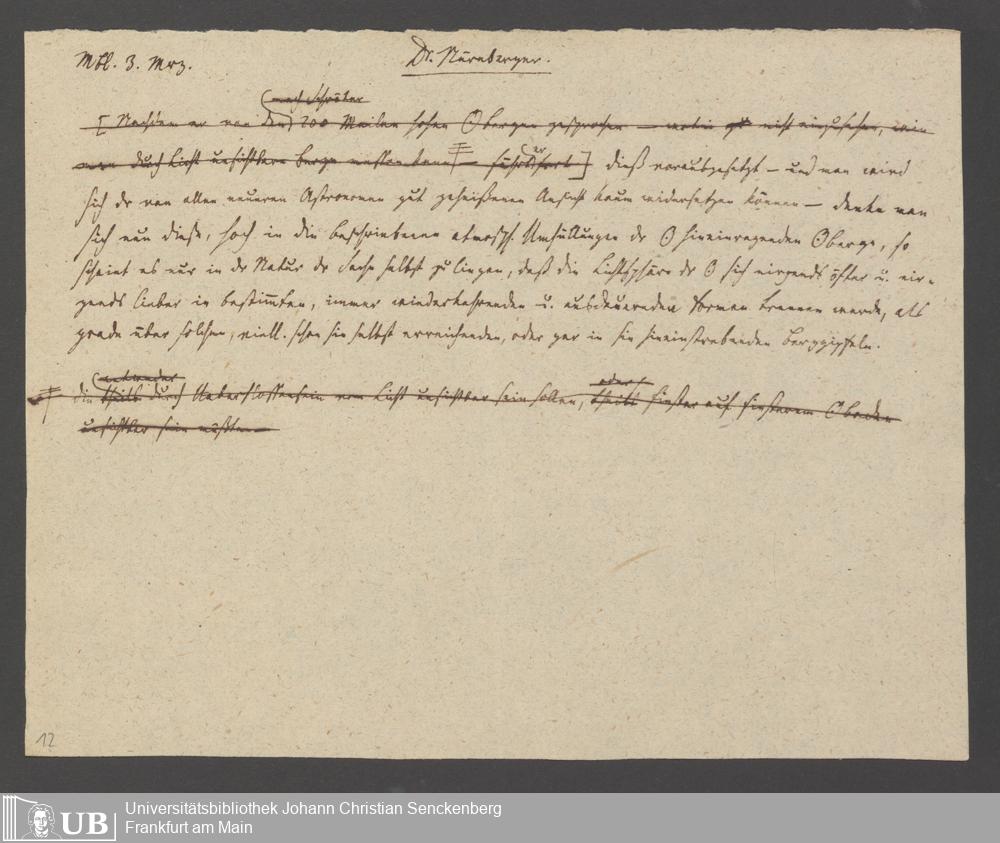 Mbl. 3. Mrz.
Dr. Nürnberger.
nach Schröter
[ Nachdem er von den 200 Meilen hohen ʘbergen gesprochen — nicht einzusehen, wie
man durch Licht unsichtbare Berge messen kann — fährt er fort ] dieß vorausgesetzt – und man wird
sich der von allen neueren Astronomen gut geheißenen Ansicht kaum widersetzen können — denke man
sich nun diese, hoch in die beschriebenen atmosph. Umhüllungen der ʘ hineinragenden ʘberge, so
scheint es nur in der Natur der Sache selbst zu liegen, daß die Lichtsphäre der ʘ sich nirgends öfter u. nir-
gends lieber in bestimmten, immer wiederkehrenden u. ausdauernden Formen trennen werde, als
grade über solchen, viell. schon sie selbst erreichenden, oder gar in sie hineinstrebenden Berggipfeln.
entweder oder
die theils durch Ueberflossensein vom Licht unsichtbar sein sollen, theils finster auf finsterem ʘboden
unsichtbar sein müßten
12
UB
Universitätsbibliothek Johann Christian Senckenberg
Frankfurt am Main